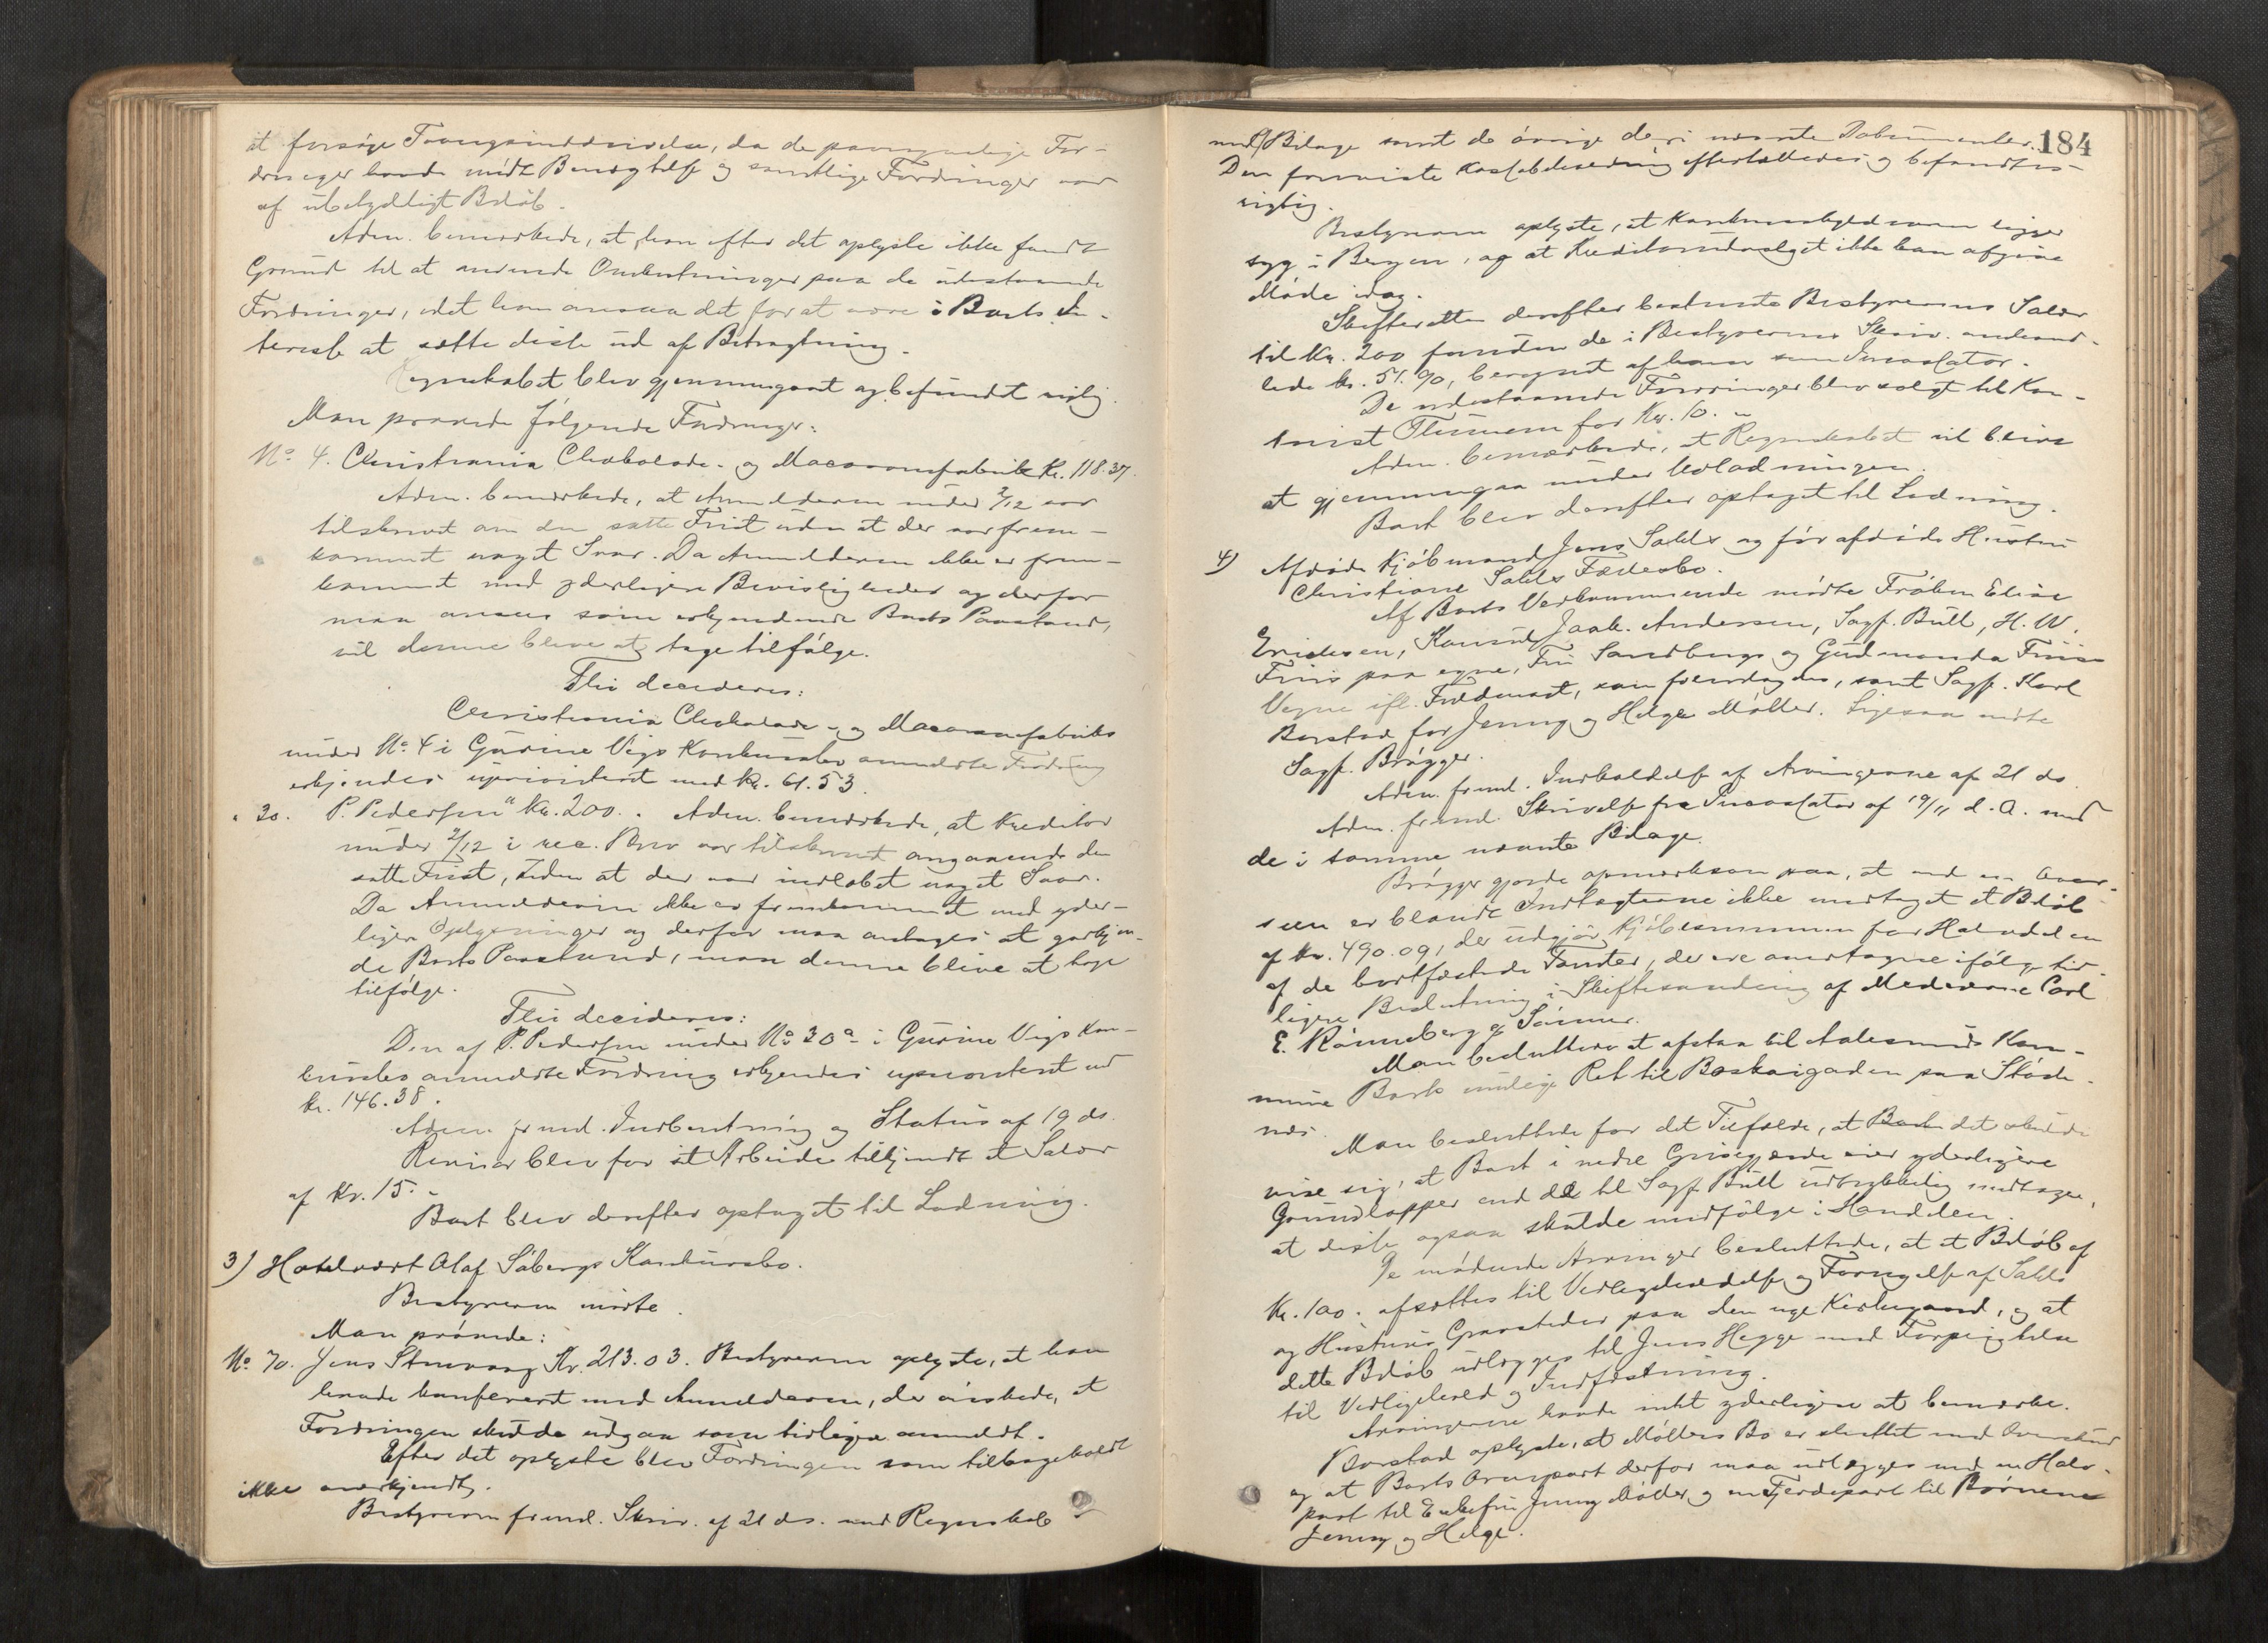 at forsøge Tvangsinddrivelse, da de paagjældende For-
dringer havde mødt Benægtelse og samtlige Fordringer var
af ubetydeligt Beløb.
Adm. bemærkede, at han efter det oplyste ikke fandt
Grund til at anvende Omkostninger paa de udestaaende
Fordringer, idet han ansaa det for at være i Boets In-
teresse at sætte disse ud af Betragtning.
Regnskabet blev gjennemgaaet og befundet rigtig.
Man prøvede følgende Fordringer:
No. 4. Christiania Chokolade- og Macaronifabrik Kr. 118.37.
Adm. bemærkede, at Anmelderen under 2/12 var
tilskrevet om den satte Frist uden at der var frem-
kommet noget Svar. Da Anmelderen ikke er frem-
kommet med yderligere Bevisligheder og derfor
maa ansees som erkjendende Boets Paastand,
vil denne blive at tage tilfølge.
Thi decideres:
Christiania Chokolade- og Macaronifabriks
under No. 4 i Gurine Vigs Konkursbo anmeldte Fordring
erkjendes uprioriteret med Kr. 61.53.
" 30. P. Pedersen Kr. 200. Adm. bemærkede, at Kreditor
under 2/12 i rec. Brev var tilskrevet angaaende den
satte Frist, uden at der var indløbet noget Svar.
Da Anmelderen ikke er fremkommet med yder-
ligere Oplysninger og derfor maa antages at godkjen-
de Boets Paastand, maa denne blive at tage
tilfølge.
Thi decideres:
Den af P. Pedersen under No. 30 a i Gurine Vigs Kon-
kursbo anmeldte Fordring erkjendes uprioriteret med
Kr. 146.38.
Adm. freml. Indberetning og Status af 19 ds.
Revisor blev for sit Arbeide tilkjendt et Salær
af Kr. 15.-
Boet blev derefter optaget til Lodning.
3) Hotelvært Olaf Søbergs Konkursbo.
Bestyreren mødte.
Man prøvede:
No. 70. Jens Stenvaag Kr. 213.03. Bestyreren oplyste, at han
havde konfereret med Anmelderen, der ønskede, at
Fordringen skulde udgaa som tidligere anmeldt.
Efter det oplyste blev Fordringen som tilbageholdt
ikke anerkjendt.
Bestyreren freml. Skriv. af 21 ds. med Regnskab
184
med Bilage samt de øvrige deri nævnte Dokumenter.
Den foreviste Kassabeholdning eftertælledes og befandtes
rigtig.
Bestyreren oplyste, at Konkursskyldneren ligger
syg i Bergen, og at Kreditorudvalget ikke kan afgive
Møde idag.
Skifteretten derefter bestemte Bestyrerens Salær
til Kr. 200 foruden de i Bestyrerens Skriv. ombehand-
lede Kr. 51.90, beregnet af ham som Incassator.
De udestaaende Fordringer blev solgt til Kon-
torist Thunem for Kr. 10.-
Adm. bemærkede, at Regnskabet vil blive
at gjennemgaa under Udlodningen.
Boet blev derefter optaget til Lodning.
4) Afdøde Kjøbmand Jens Sahls og før afdøde Hustru
Christiane Sahls Fællesbo.
Af Boets Vedkommende mødte Frøken Elise
Eriksen, Konsul Joak. Andersen, Sagf. Bull, H. W.
Friis paa egne, Fru Sandbergs og Gudmunda Friis
Vegne ifl. Fuldmagt, som fremlagdes, samt Sagf. Karl
Borstad for Jenny og Helge Møller. Ligesaa mødte
Sagf. Brøgger.
Adm. freml. Indkaldelse af Arvingerne af 21 ds.
Adm. freml. Skrivelse fra Incassator af 19/11 d. A. med
de i samme nævnte Bilage.
Brøgger gjorde opmærksom paa, at
er blandt Indtægterne ikke medtaget et Beløb
af Kr. 490.09, der udgjør Kjøbesummen for Halvdelen
af de bortfæstede Tomter, der ere overtagne ifølge tid-
ligere Beslutning i Skiftesamling af Medeierne Carl
E. Rønneberg & Sønner.
Man besluttede at afstaa til Aalesunds Kom-
mune Boets mulige Ret til paa Skade-
næs.
Man besluttede for det Tilfælde, at det skulde
vise sig, at Boet i nedre eier yderligere
Grundlapper end de til Sagf. Bull udtrykkelig medtagne,
at disse ogsaa skulde medfølge i Handelen.
De mødende Arvinger besluttede, at et Beløb af
Kr. 100.- afsættes til Vedligeholdelse og af Sahls
og Hustrus Gravsteder paa den nye Kirkegaard, og at
dette Beløb udlægges til Jens Hegge med Forpligtelse
til Vedligehold og Indfæstning.
Arvingerne havde intet yderligere at bemærke.
Borstad oplyste, at Møllers Bo er sluttet med Overskud
og at Boets Arvepart derfor maa udlægges med en Halv-
part til Enkefru Jenny Møller og en Fjerdepart til Børnene
Jenny og Helge.